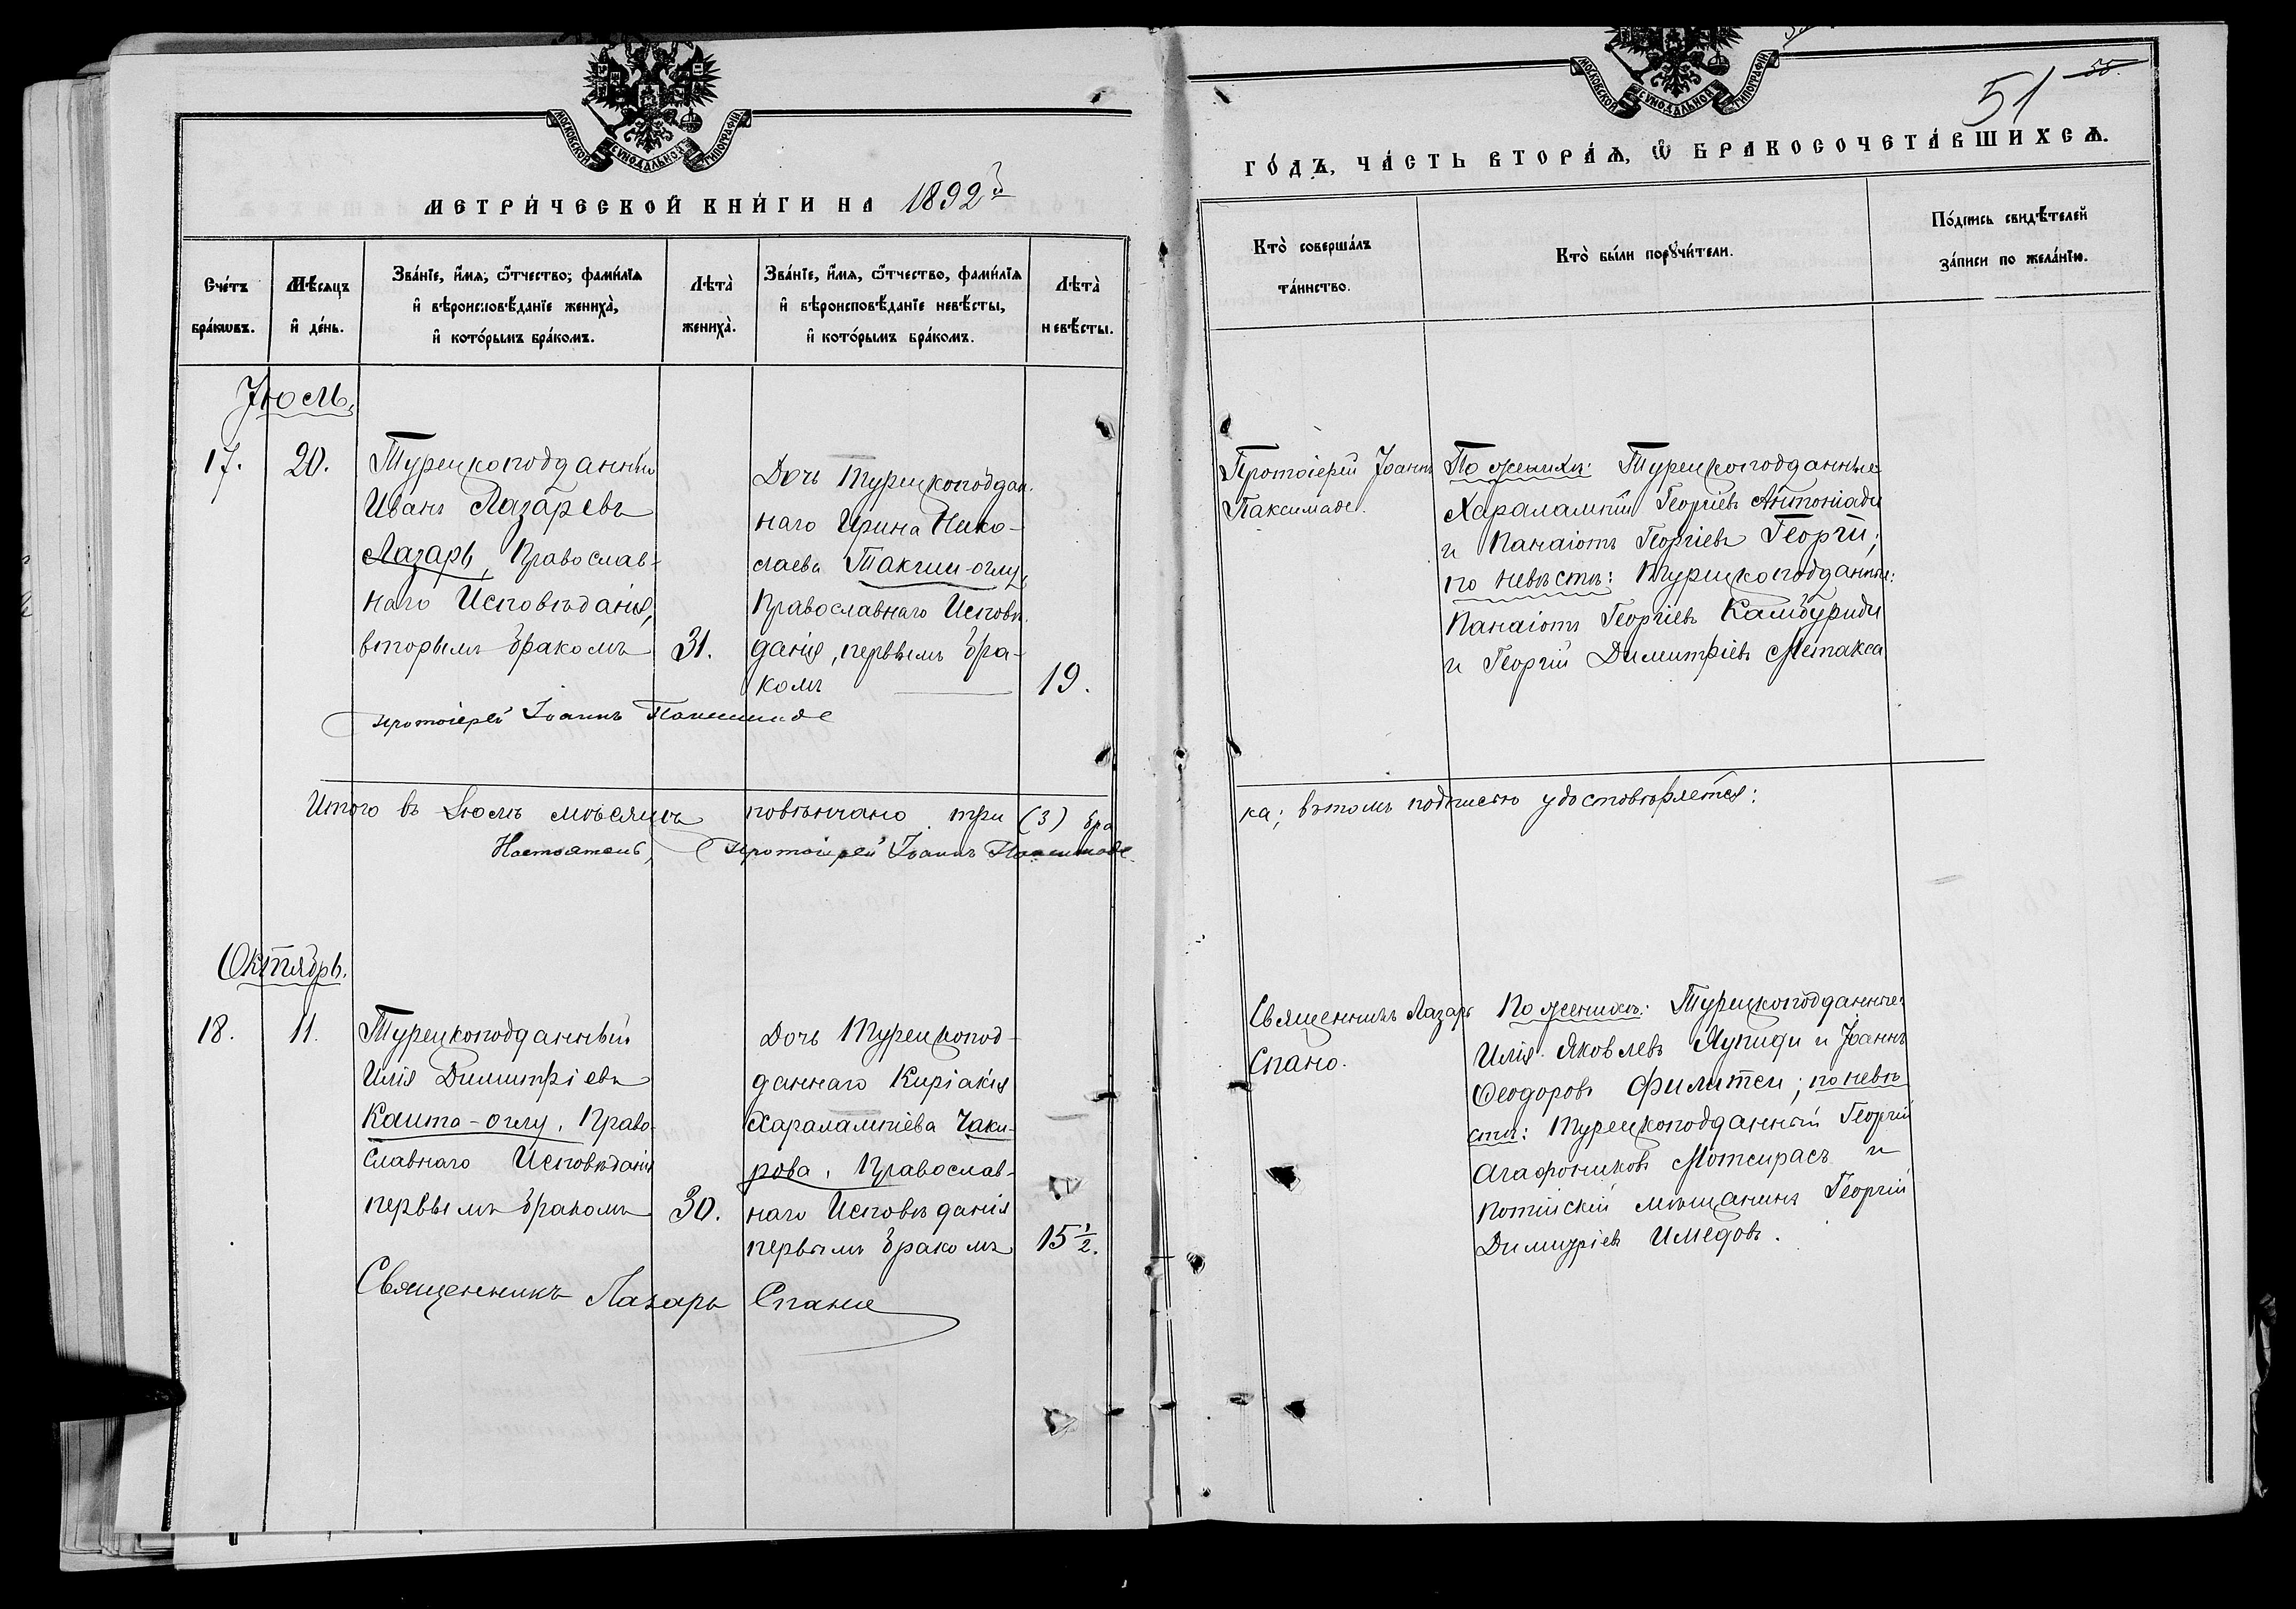 МОСКОВСКОЙ СѴНОДАЛЬНОЙ ТИПОГРАФІИ
МЕТРИ́ЧЕСКОЙ КНИ́ГИ НА 1892й
Сче́тъ бра́ковъ.
Мѣ́сяцъ и҆ де́нь.
Зва́нїе, и҆́мя, ѻ҆́тчество, фами́лїя
и҆ вѣроисповѣ́данїе жениха̀,
и҆ кото́рымъ бра́комъ.
Лѣта̀ жениха̀.
Зва́нїе, и҆́мя, ѻ҆́тчество, фами́лїя
и҆ вѣроисповѣ́данїе невѣ́сты,
и҆ кото́рымъ бра́комъ.
Лѣта̀ невѣ́сты.
Іюль,
17.
20.
Турецкоподданный
Иванъ Лазаревъ
Лазарь, Православ-
наго Исповѣданія,
вторымъ бракомъ
31.
Дочь Турецкоподдан-
наго Ирина Нико-
лаева Такчи-оглу,
Православнаго Исповѣ-
данія, первымъ бра-
комъ
19.
Протоіерей Іоаннъ Паксимаде
Итого въ Іюлѣ мѣсяцѣ повѣнчано три (3) бра
Настоятель, Протоіерей Іоаннъ Паксимаде
Октябрь.
18.
11.
Турецкоподданный
Илія Димитріевъ
Кашта-оглу, Право-
славнаго Исповѣданія
первымъ бракомъ
30.
Дочь Турецкопод-
даннаго Киріакія
Харалампіева Чаки-
рова, Православ-
наго Исповѣданія
первымъ бракомъ
15 1/2.
Священникъ Лазарь Спано
МОСКОВСКОЙ СѴНОДАЛЬНОЙ ТИПОГРАФІИ
51
55.
ГО́ДЪ, ЧА́СТЬ ВТОРА́Я, Ѽ БРАКОСОЧЕТА́ВШИХСЯ.
Кто̀ соверша́лъ
та́инство.
Кто̀ бы́ли порꙋчи́тели.
По́дпись свидѣ́телей
за́писи по жела́нїю.
Протоіерей Іоаннъ
Паксимаде.
По женихѣ: Турецкоподданные
Харалампій Георгіевъ Антоніади
и Панаіотъ Георгіевъ Георгій;
по невѣстѣ: Турецкоподданные:
Панаіотъ Георгіевъ Камбуриди
и Георгій Димитріевъ Метакса
ка; въ томъ подписью удостовѣряется:
Священникъ Лазарь
Спано.
По женихѣ: Турецкоподданные
Илія Яковлевъ Яупиди и Іоаннъ
Ѳеодоровъ Филитси; по невѣ
стѣ: Турецкоподданный Георгій
Агафониковъ Мотсирасъ и
Потійскій мѣщанинъ Георгій
Димитріевъ Имедовъ.